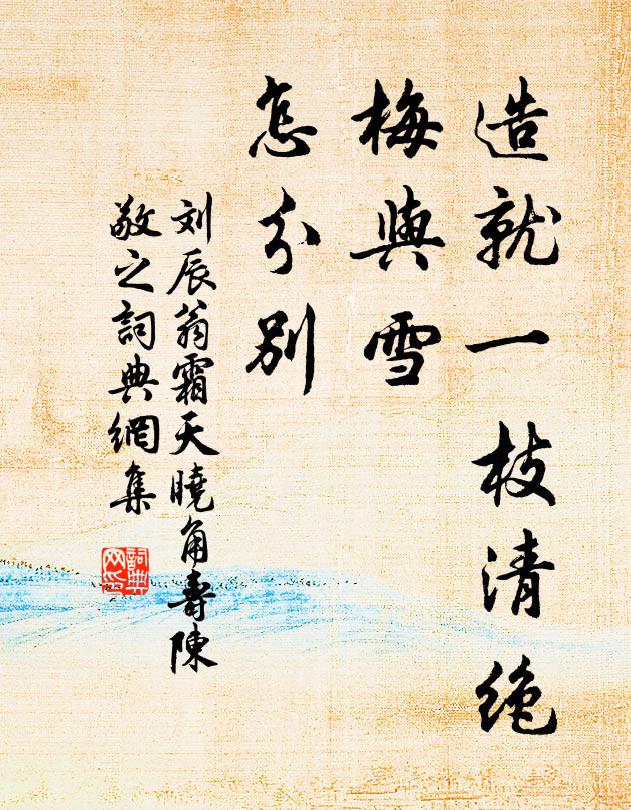 造就一枝清绝
梅與雪
怎分別
刘辰翁霜天曉角壽陳
敬之詞典網集
詞典
网印